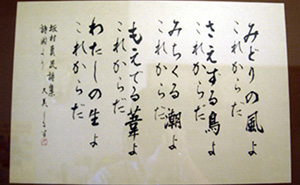 みどりの風よ
これからだ
さえずる鳥よ
これからだ
みちくる潮よ
これからだ
もえでる葦よ
これからだ
わたしの生よ
これからだ
坂村真民詩集
詩国より